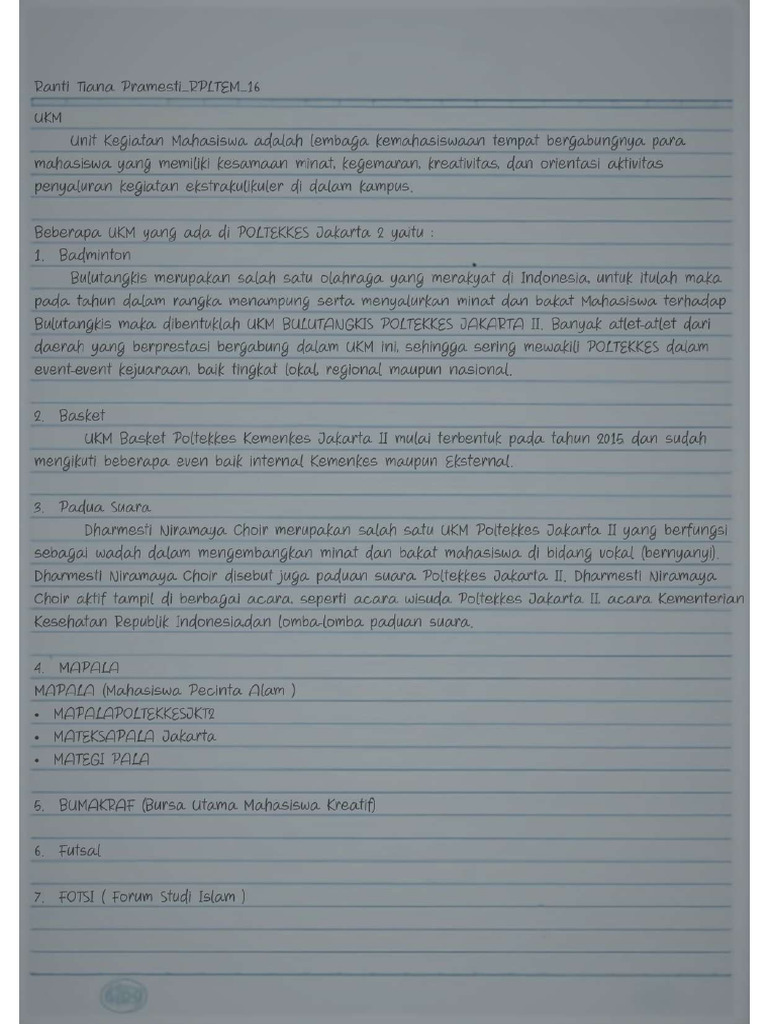 Ranti Tiana Pramesti_RPLTEM_16
UKM
Unit Kegiatan Mahasiswa adalah lembaga kemahasiswaan tempat bergabungnya para
mahasiswa yang memiliki kesamaan minat, kegemaran, kreativitas, dan orientasi aktivitas
penyaluran kegiatan ekstrakulikuler di dalam kampus.
Beberapa UKM yang ada di POLTEKKES Jakarta 2 yaitu :
1. Badminton
Bulutangkis merupakan salah satu olahraga yang merakyat di Indonesia, untuk itulah maka
pada tahun dalam rangka menampung serta menyalurkan minat dan bakat Mahasiswa terhadap
Bulutangkis maka dibentuklah UKM BULUTANGKIS POLTEKKES JAKARTA II. Banyak atlet-atlet dari
daerah yang berprestasi bergabung dalam UKM ini, sehingga sering mewakili POLTEKKES dalam
event-event kejuaraan, baik tingkat lokal, regional maupun nasional.
2. Basket
UKM Basket Poltekkes Kemenkes Jakarta II mulai terbentuk pada tahun 2015 dan sudah
mengikuti beberapa even baik internal Kemenkes maupun Eksternal.
3. Padua Suara
Dharmesti Niramaya Choir merupakan salah satu UKM Poltekkes Jakarta II yang berfungsi
sebagai wadah dalam mengembangkan minat dan bakat mahasiswa di bidang vokal (bernyanyi).
Dharmesti Niramaya Choir disebut juga paduan suara Poltekkes Jakarta II. Dharmesti Niramaya
Choir aktif tampil di berbagai acara, seperti acara wisuda Poltekkes Jakarta II, acara Kementerian
Kesehatan Republik Indonesia,dan lomba-lomba paduan suara.
4. MAPALA
MAPALA (Mahasiswa Pecinta Alam )
• MAPALAPOLTEKKESJKT2
• MATEKSAPALA Jakarta
• MATEGI PALA
5. BUMAKRAF (Bursa Utama Mahasiswa Kreatif)
6. Futsal
7. FOTSI ( Forum Studi Islam )